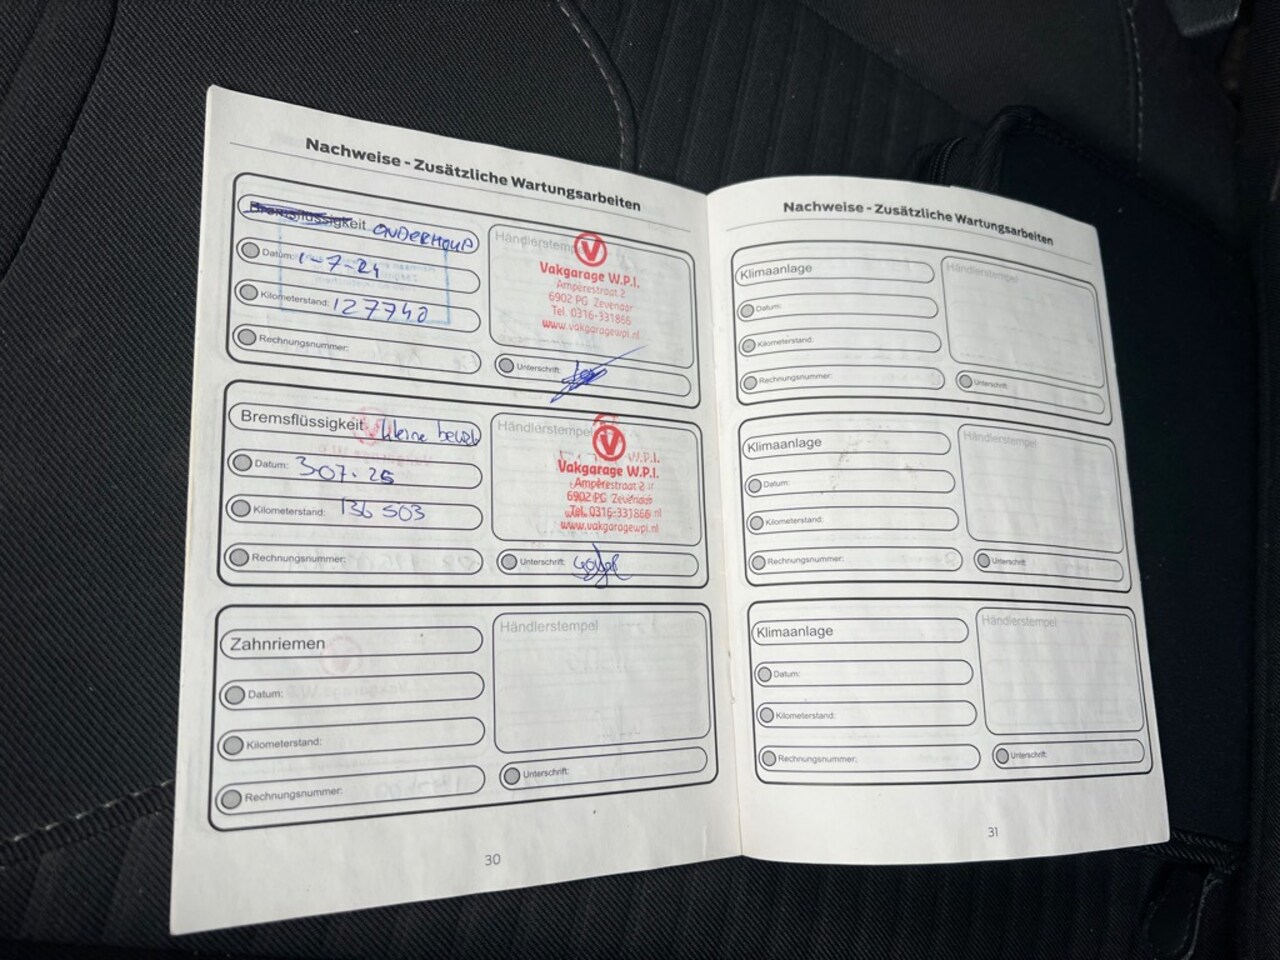 Nachweise - Zusätzliche Wartungsarbeiten
Bremsflüssigkeit ONDERHOUD
Datum: 1-7-24
Kilometerstand: 127740
Rechnungsnummer:
Händlerstemp
V
Vakgarage W.P.I.
Ampèrestraat 2
6902 PG Zevenaar
Tel. 0316-331866
www.vakgaragewpi.nl
Unterschrift:
Bremsflüssigkeit kleine beurt
Datum: 307.25
Kilometerstand: 136 503
Rechnungsnummer:
Händlerstempel
V
Vakgarage W.P.I.
Ampèrestraat 2
6902 PG Zevenaar
Tel. 0316-331866
www.vakgaragewpi.nl
Unterschrift:
Zahnriemen
Datum:
Kilometerstand:
Rechnungsnummer:
Händlerstempel
Unterschrift:
30
Nachweise - Zusätzliche Wartungsarbeiten
Klimaanlage
Datum:
Kilometerstand:
Rechnungsnummer:
Händlerstempel
Unterschrift:
Klimaanlage
Datum:
Kilometerstand:
Rechnungsnummer:
Händlerstempel
Unterschrift:
Klimaanlage
Datum:
Kilometerstand:
Rechnungsnummer:
Händlerstempel
Unterschrift:
31